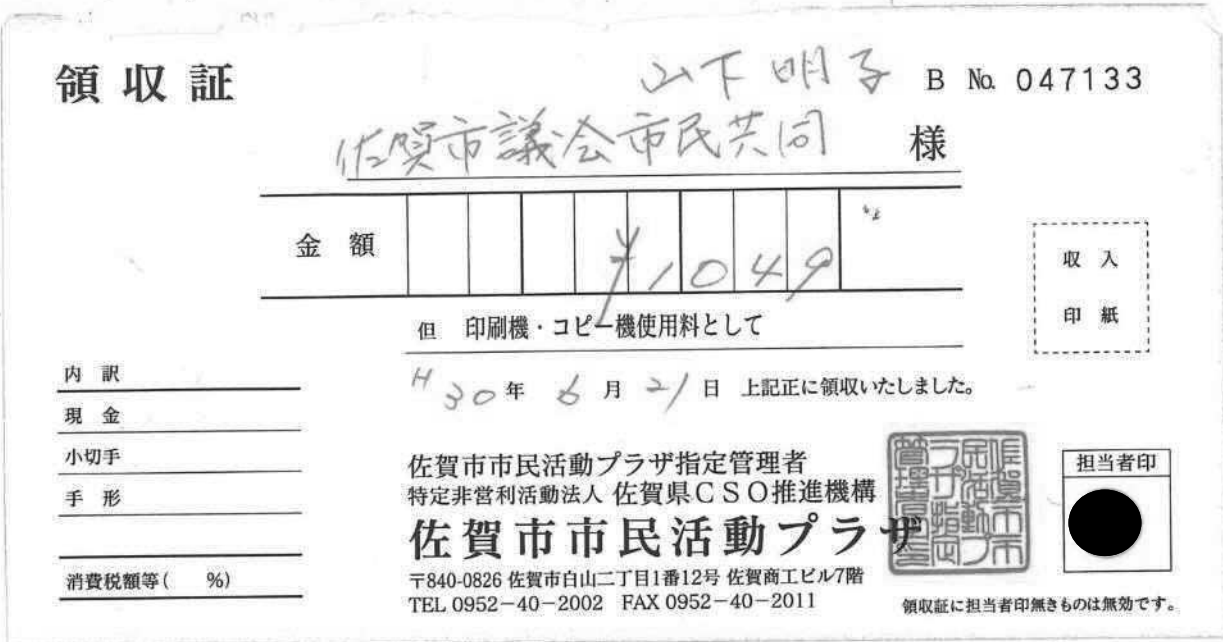 領収証
山下明子
B No. 047133
佐賀市議会市民共同 様
金額 ¥1049
収入
印紙
但 印刷機・コピー機使用料として
H30年6月21日 上記正に領収いたしました。
内訳
現金
小切手
手形
消費税額等( %)
佐賀市市民活動プラザ指定管理者
特定非営利活動法人 佐賀県CSO推進機構
佐賀市市民活動プラザ
〒840-0826 佐賀市白山二丁目1番12号 佐賀商工ビル7階
TEL 0952-40-2002 FAX 0952-40-2011
担当者印
領収証に担当者印無きものは無効です。